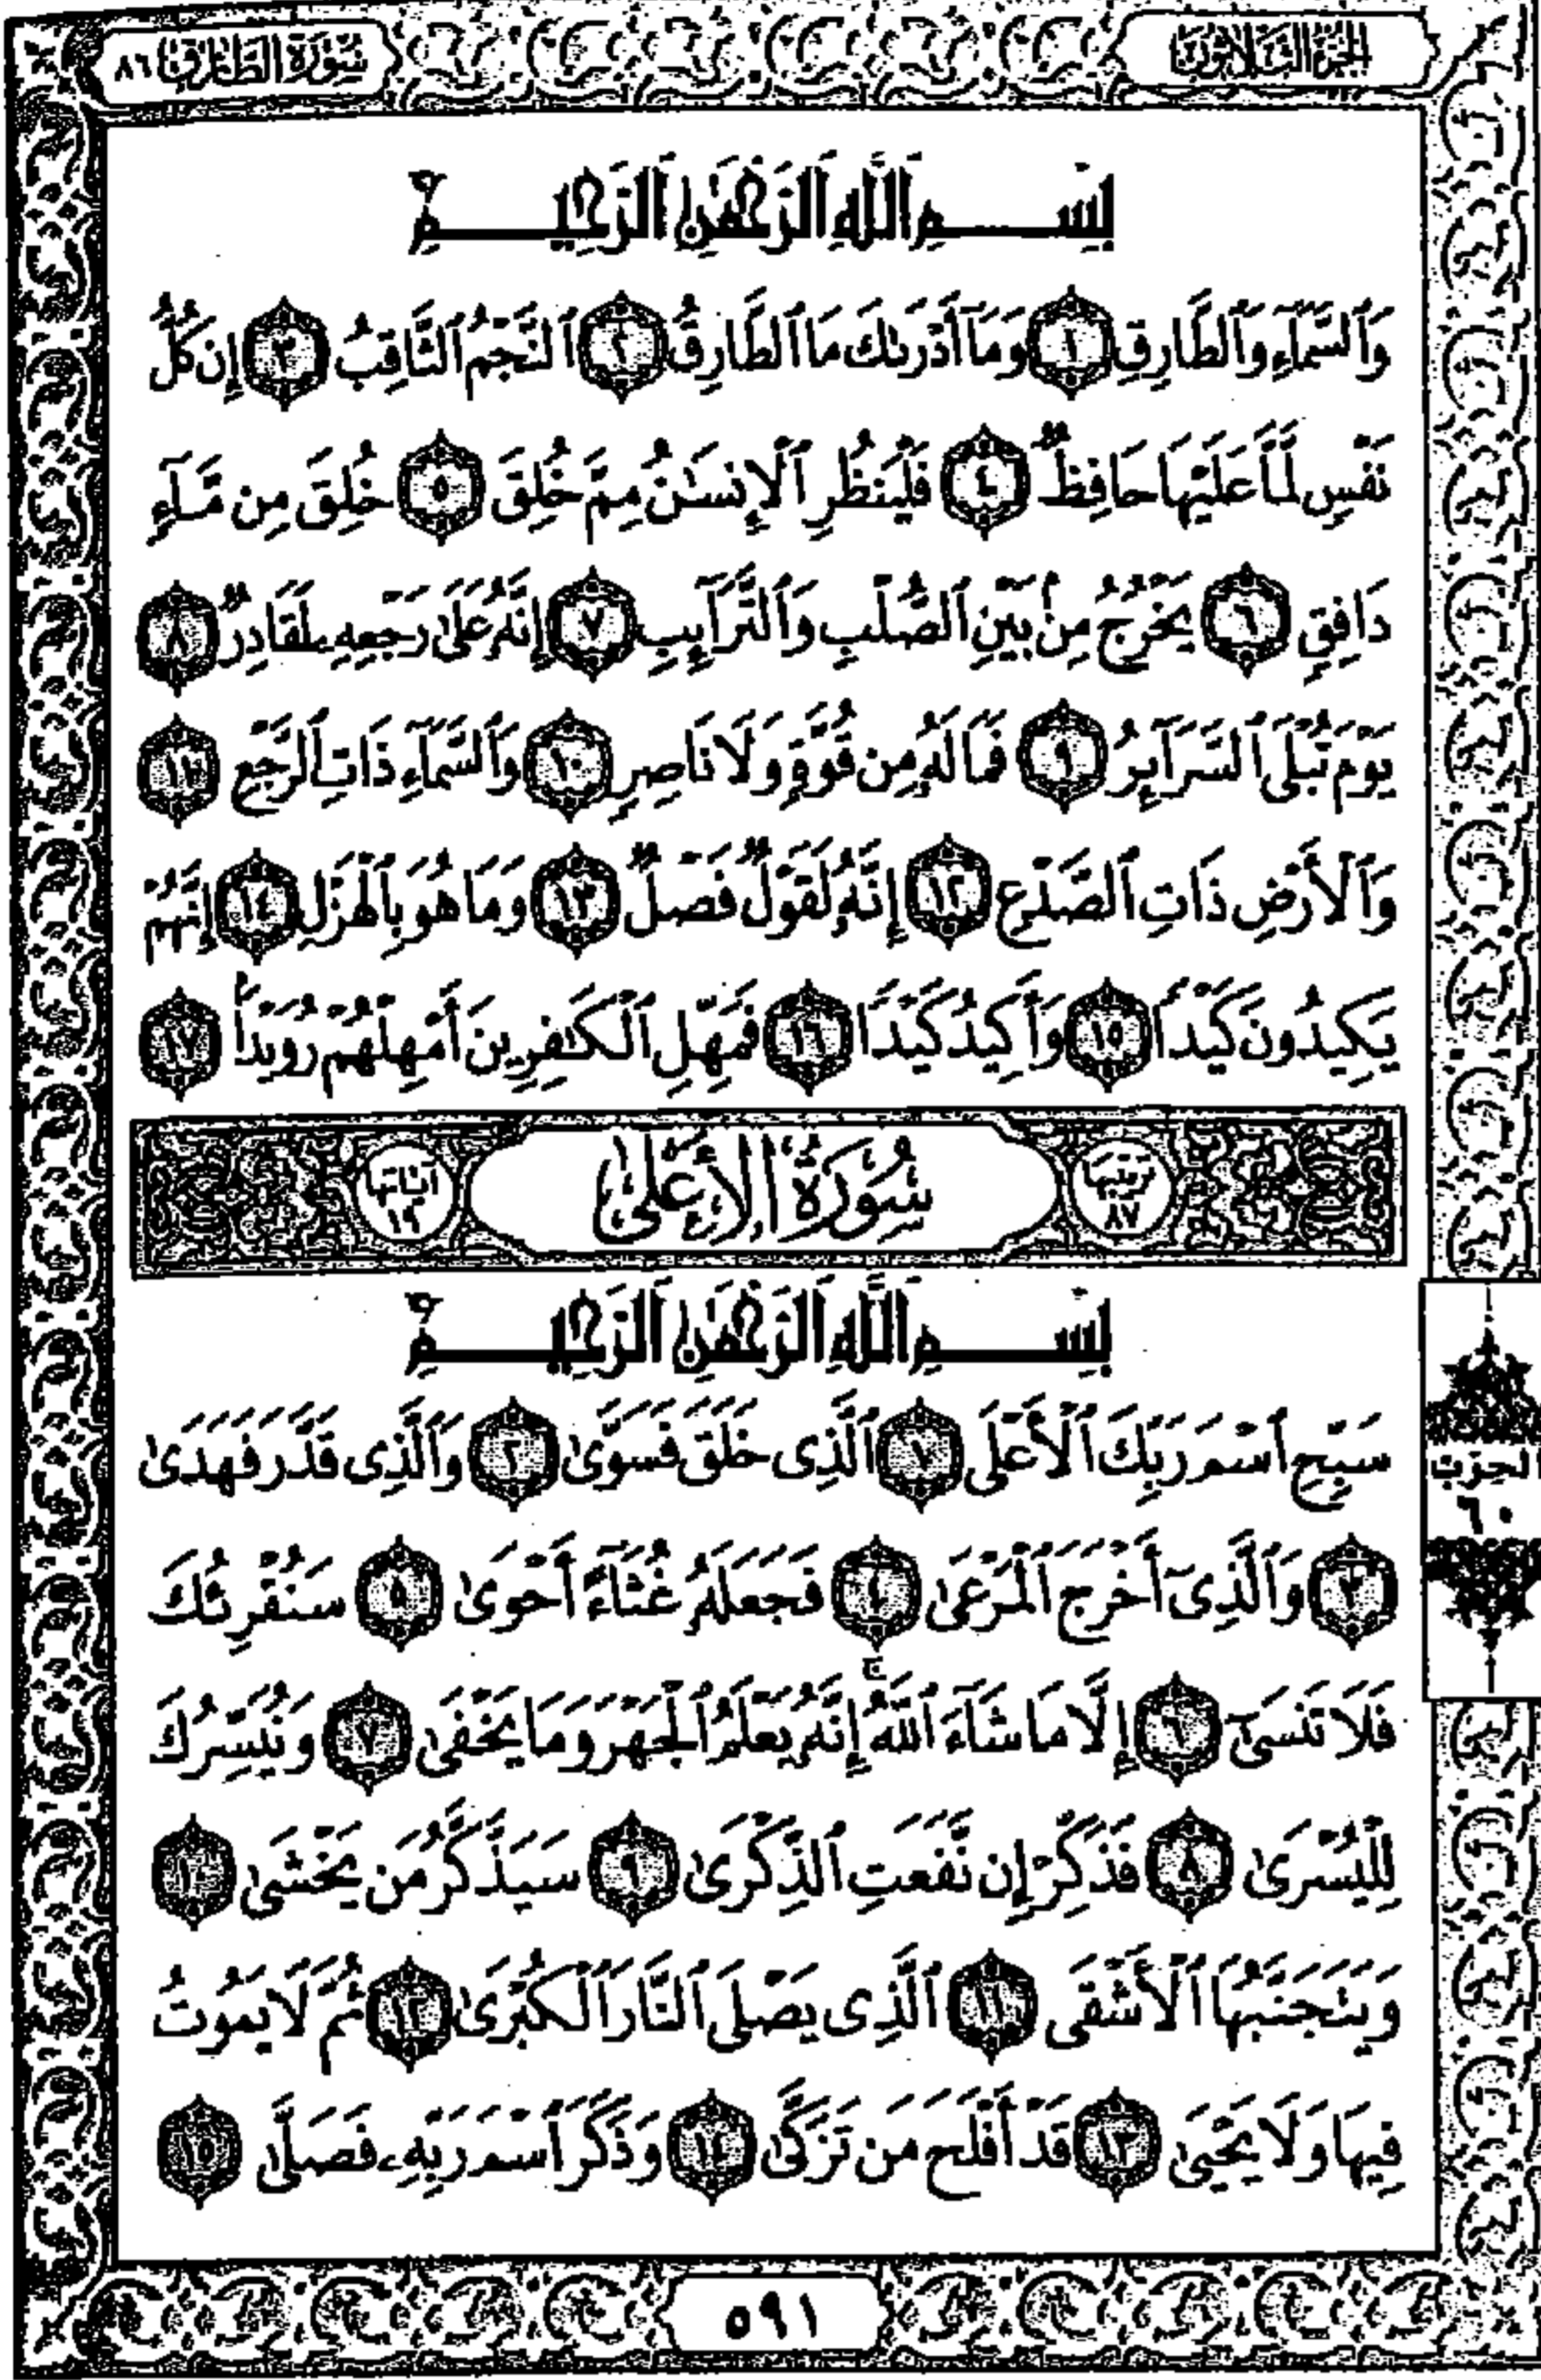 الجزء الثلاثون
سورة الطارق ٨٦
بِسْمِ ٱللَّهِ ٱلرَّحْمَٰنِ ٱلرَّحِيمِ
وَٱلسَّمَآءِ وَٱلطَّارِقِ ١ وَمَآ أَدْرَىٰكَ مَا ٱلطَّارِقُ ٢ ٱلنَّجْمُ ٱلثَّاقِبُ ٣ إِن كُلُّ
نَفْسٍ لَّمَّا عَلَيْهَا حَافِظٌ ٤ فَلْيَنظُرِ ٱلْإِنسَٰنُ مِمَّ خُلِقَ ٥ خُلِقَ مِن مَّآءٍ
دَافِقٍ ٦ يَخْرُجُ مِنۢ بَيْنِ ٱلصُّلْبِ وَٱلتَّرَآئِبِ ٧ إِنَّهُۥ عَلَىٰ رَجْعِهِۦ لَقَادِرٌ ٨
يَوْمَ تُبْلَى ٱلسَّرَآئِرُ ٩ فَمَا لَهُۥ مِن قُوَّةٍ وَلَا نَاصِرٍ ١٠ وَٱلسَّمَآءِ ذَاتِ ٱلرَّجْعِ ١١
وَٱلْأَرْضِ ذَاتِ ٱلصَّدْعِ ١٢ إِنَّهُۥ لَقَوْلٌ فَصْلٌ ١٣ وَمَا هُوَ بِٱلْهَزْلِ ١٤ إِنَّهُمْ
يَكِيدُونَ كَيْدًا ١٥ وَأَكِيدُ كَيْدًا ١٦ فَمَهِّلِ ٱلْكَٰفِرِينَ أَمْهِلْهُمْ رُوَيْدًۢا ١٧
ترتيبها ٨٧ سُورَةُ الأَعْلَىٰ آياتها ١٩
بِسْمِ ٱللَّهِ ٱلرَّحْمَٰنِ ٱلرَّحِيمِ
سَبِّحِ ٱسْمَ رَبِّكَ ٱلْأَعْلَى ١ ٱلَّذِى خَلَقَ فَسَوَّىٰ ٢ وَٱلَّذِى قَدَّرَ فَهَدَىٰ
٣ وَٱلَّذِىٓ أَخْرَجَ ٱلْمَرْعَىٰ ٤ فَجَعَلَهُۥ غُثَآءً أَحْوَىٰ ٥ سَنُقْرِئُكَ
فَلَا تَنسَىٰٓ ٦ إِلَّا مَا شَآءَ ٱللَّهُ ۚ إِنَّهُۥ يَعْلَمُ ٱلْجَهْرَ وَمَا يَخْفَىٰ ٧ وَنُيَسِّرُكَ
لِلْيُسْرَىٰ ٨ فَذَكِّرْ إِن نَّفَعَتِ ٱلذِّكْرَىٰ ٩ سَيَذَّكَّرُ مَن يَخْشَىٰ ١٠
وَيَتَجَنَّبُهَا ٱلْأَشْقَى ١١ ٱلَّذِى يَصْلَى ٱلنَّارَ ٱلْكُبْرَىٰ ١٢ ثُمَّ لَا يَمُوتُ
فِيهَا وَلَا يَحْيَىٰ ١٣ قَدْ أَفْلَحَ مَن تَزَكَّىٰ ١٤ وَذَكَرَ ٱسْمَ رَبِّهِۦ فَصَلَّىٰ ١٥
الحزب
٦٠
٥٩١